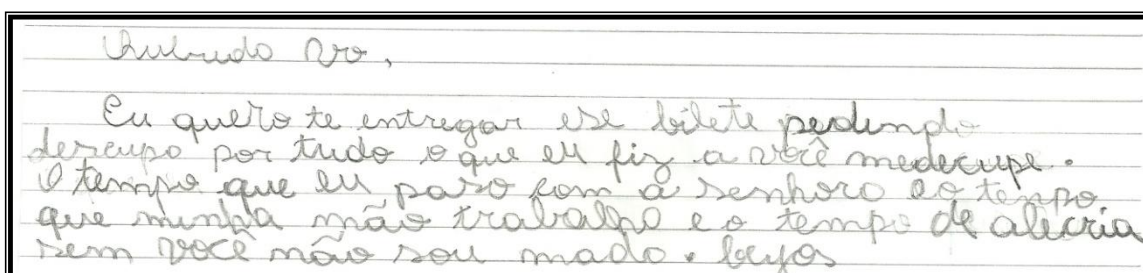 Vo,
Eu quero te entregar ese bilete pedindo
descupo por tudo o que eu fiz a você medecupe.
O tempo que eu paso com a senhora e o tempo
que minha mão trabalha e o tempo de alecria
sem você não sou mado. beijos